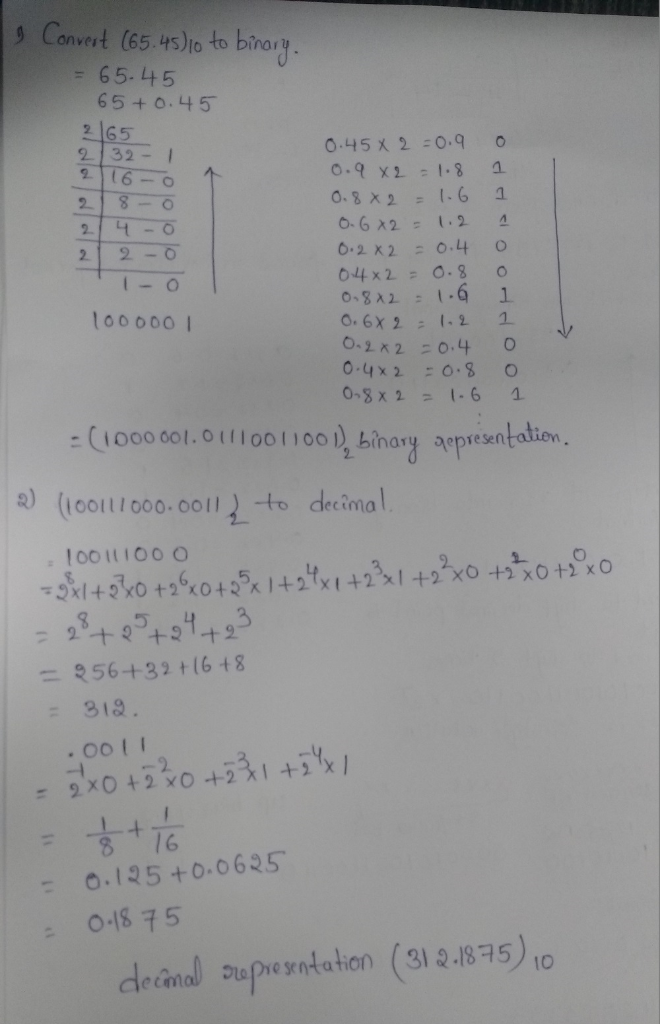 1) Convert (65.45)10 to binary.
= 65.45
65 + 0.45
2 | 65
2 | 32 - 1
2 | 16 - 0
2 | 8 - 0
2 | 4 - 0
2 | 2 - 0
1 - 0
1000001
0.45 x 2 = 0.9 0
0.9 x 2 = 1.8 1
0.8 x 2 = 1.6 1
0.6 x 2 = 1.2 1
0.2 x 2 = 0.4 0
0.4 x 2 = 0.8 0
0.8 x 2 = 1.6 1
0.6 x 2 = 1.2 1
0.2 x 2 = 0.4 0
0.4 x 2 = 0.8 0
0.8 x 2 = 1.6 1
= (1000001.01110011001)2 binary representation.
2) (100111000.0011)2 to decimal.
100111000
= 2^8x1 + 2^7x0 + 2^6x0 + 2^5x1 + 2^4x1 + 2^3x1 + 2^2x0 + 2^1x0 + 2^0x0
= 2^8 + 2^5 + 2^4 + 2^3
= 256 + 32 + 16 + 8
= 312.
.0011
= 2^-1x0 + 2^-2x0 + 2^-3x1 + 2^-4x1
= 1/8 + 1/16
= 0.125 + 0.0625
= 0.1875
decimal representation (312.1875)10